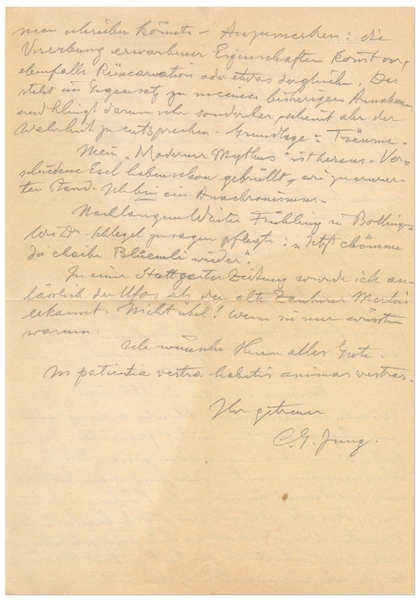 man schreiben könnte – Anzumerken: die
Vererbung erworbener Eigenschaften kommt vor,
ebenfalls Reincarnation oder etwas dergleichen. Das
steht im Gegensatz zu meinen bisherigen Annahmen
und klingt darum sehr sonderbar, scheint aber der
Wahrheit zu entsprechen. Grundlage: Träume.
Mein „Moderner Mythus" ist heraus. Ver-
schiedene Esel haben schon gebrüllt, wie zu erwar-
ten stand. Ich bin ein Anachronismus.
Nach langem Winter Frühling in Bollingen
wie Dr. Schlegel zu sagen pflegte: „Jetzt chömme
di chaibe Blüemli wieder".
In einer Stuttgarter Zeitung wurde ich an-
lässlich der Ufos als der alte Zauberer Merlin
erkannt. Nicht übel! Wenn sie nur wüssten
warum.
Ich wünsche Ihnen alles Gute.
In patientia vestra habetis animas vestras.
Ihr getreuer
C. G. Jung.